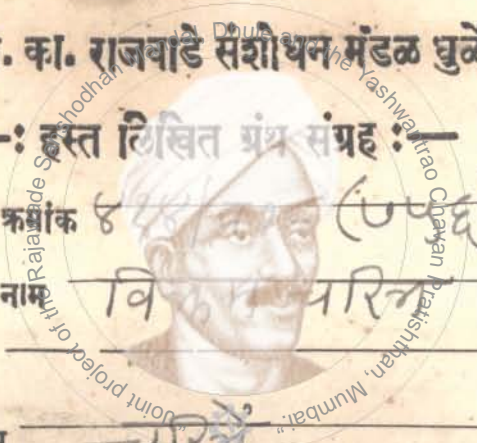 . का. राजवाडे संशोधन मंडळ धुळे
-: हस्त लिखित ग्रंथ संग्रह :—
क्रमांक ४१४/ (७५६
नाम वि चरित्र
"Joint project of the Rajawade Sanshodhan Mandal, Dhule and the Yashwantrao Chavan Pratishthan, Mumbai."